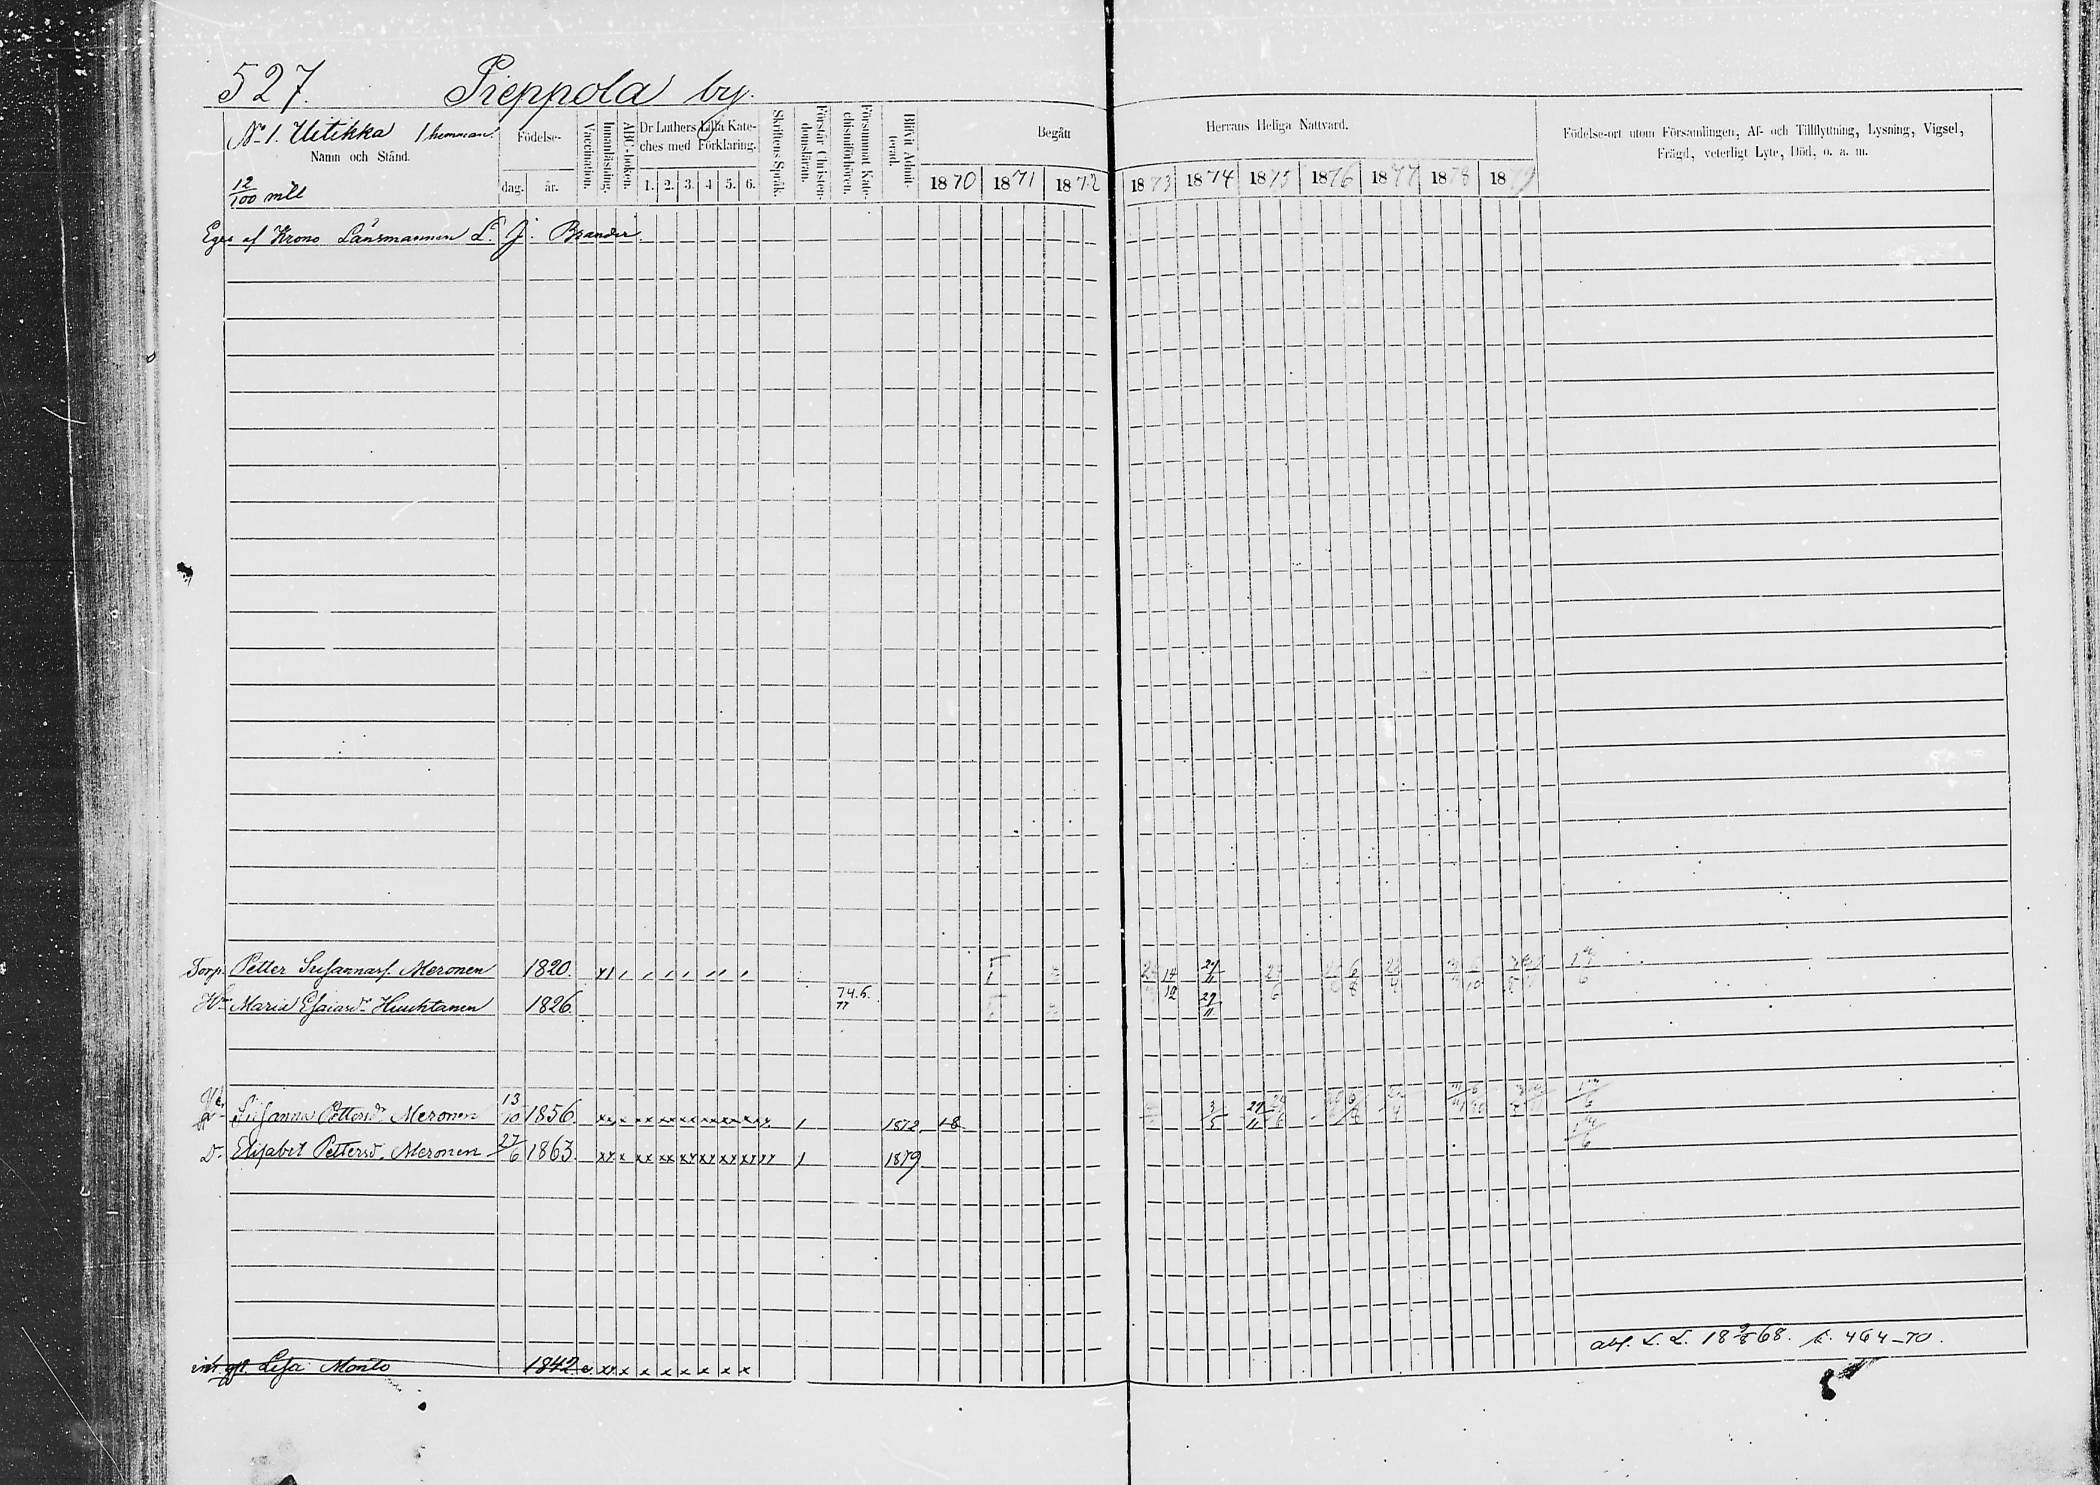 527. Pieppola by.
No 1. Uitikka 1 hemman.
Namn och Stånd.
12/100 mtl
Födelse-
dag. år.
Vaccination.
Innanläsning.
ABC-boken.
Dr Luthers Lilla Kate-
ches med Förklaring.
1. 2. 3. 4 5. 6.
Skriftens Språk.
Förstår Christen-
domsläran.
Försummat Kate-
chismiförhören.
Blifvit Admit-
terad.
Begått Herrans Heliga Nattvard.
1870 1871 1872 1873 1874 1875 1876 1877 1878 1879
Födelse-ort utom Församlingen, Af- och Tillflyttning, Lysning, Vigsel,
Frägd, veterligt Lyte, Död, o. a. m.
Eges af Krono Länsmannen L. J. Brander
Torp. Petter Susannas. Meronen 1820. 14/12 29/11
Hu Maria Esaiasdr Huuhtanen 1826. 74.5. 77 29/11
Susanna Pettersdr Meronen 13/10 1856. 1 1872 18 3/5 29/11
Dr Elisabet Pettersd. Meronen 27/6 1863. 1 1879
inh. Lisa Monto 1842 abf. L. L. 18 9/8 68. 464-70.